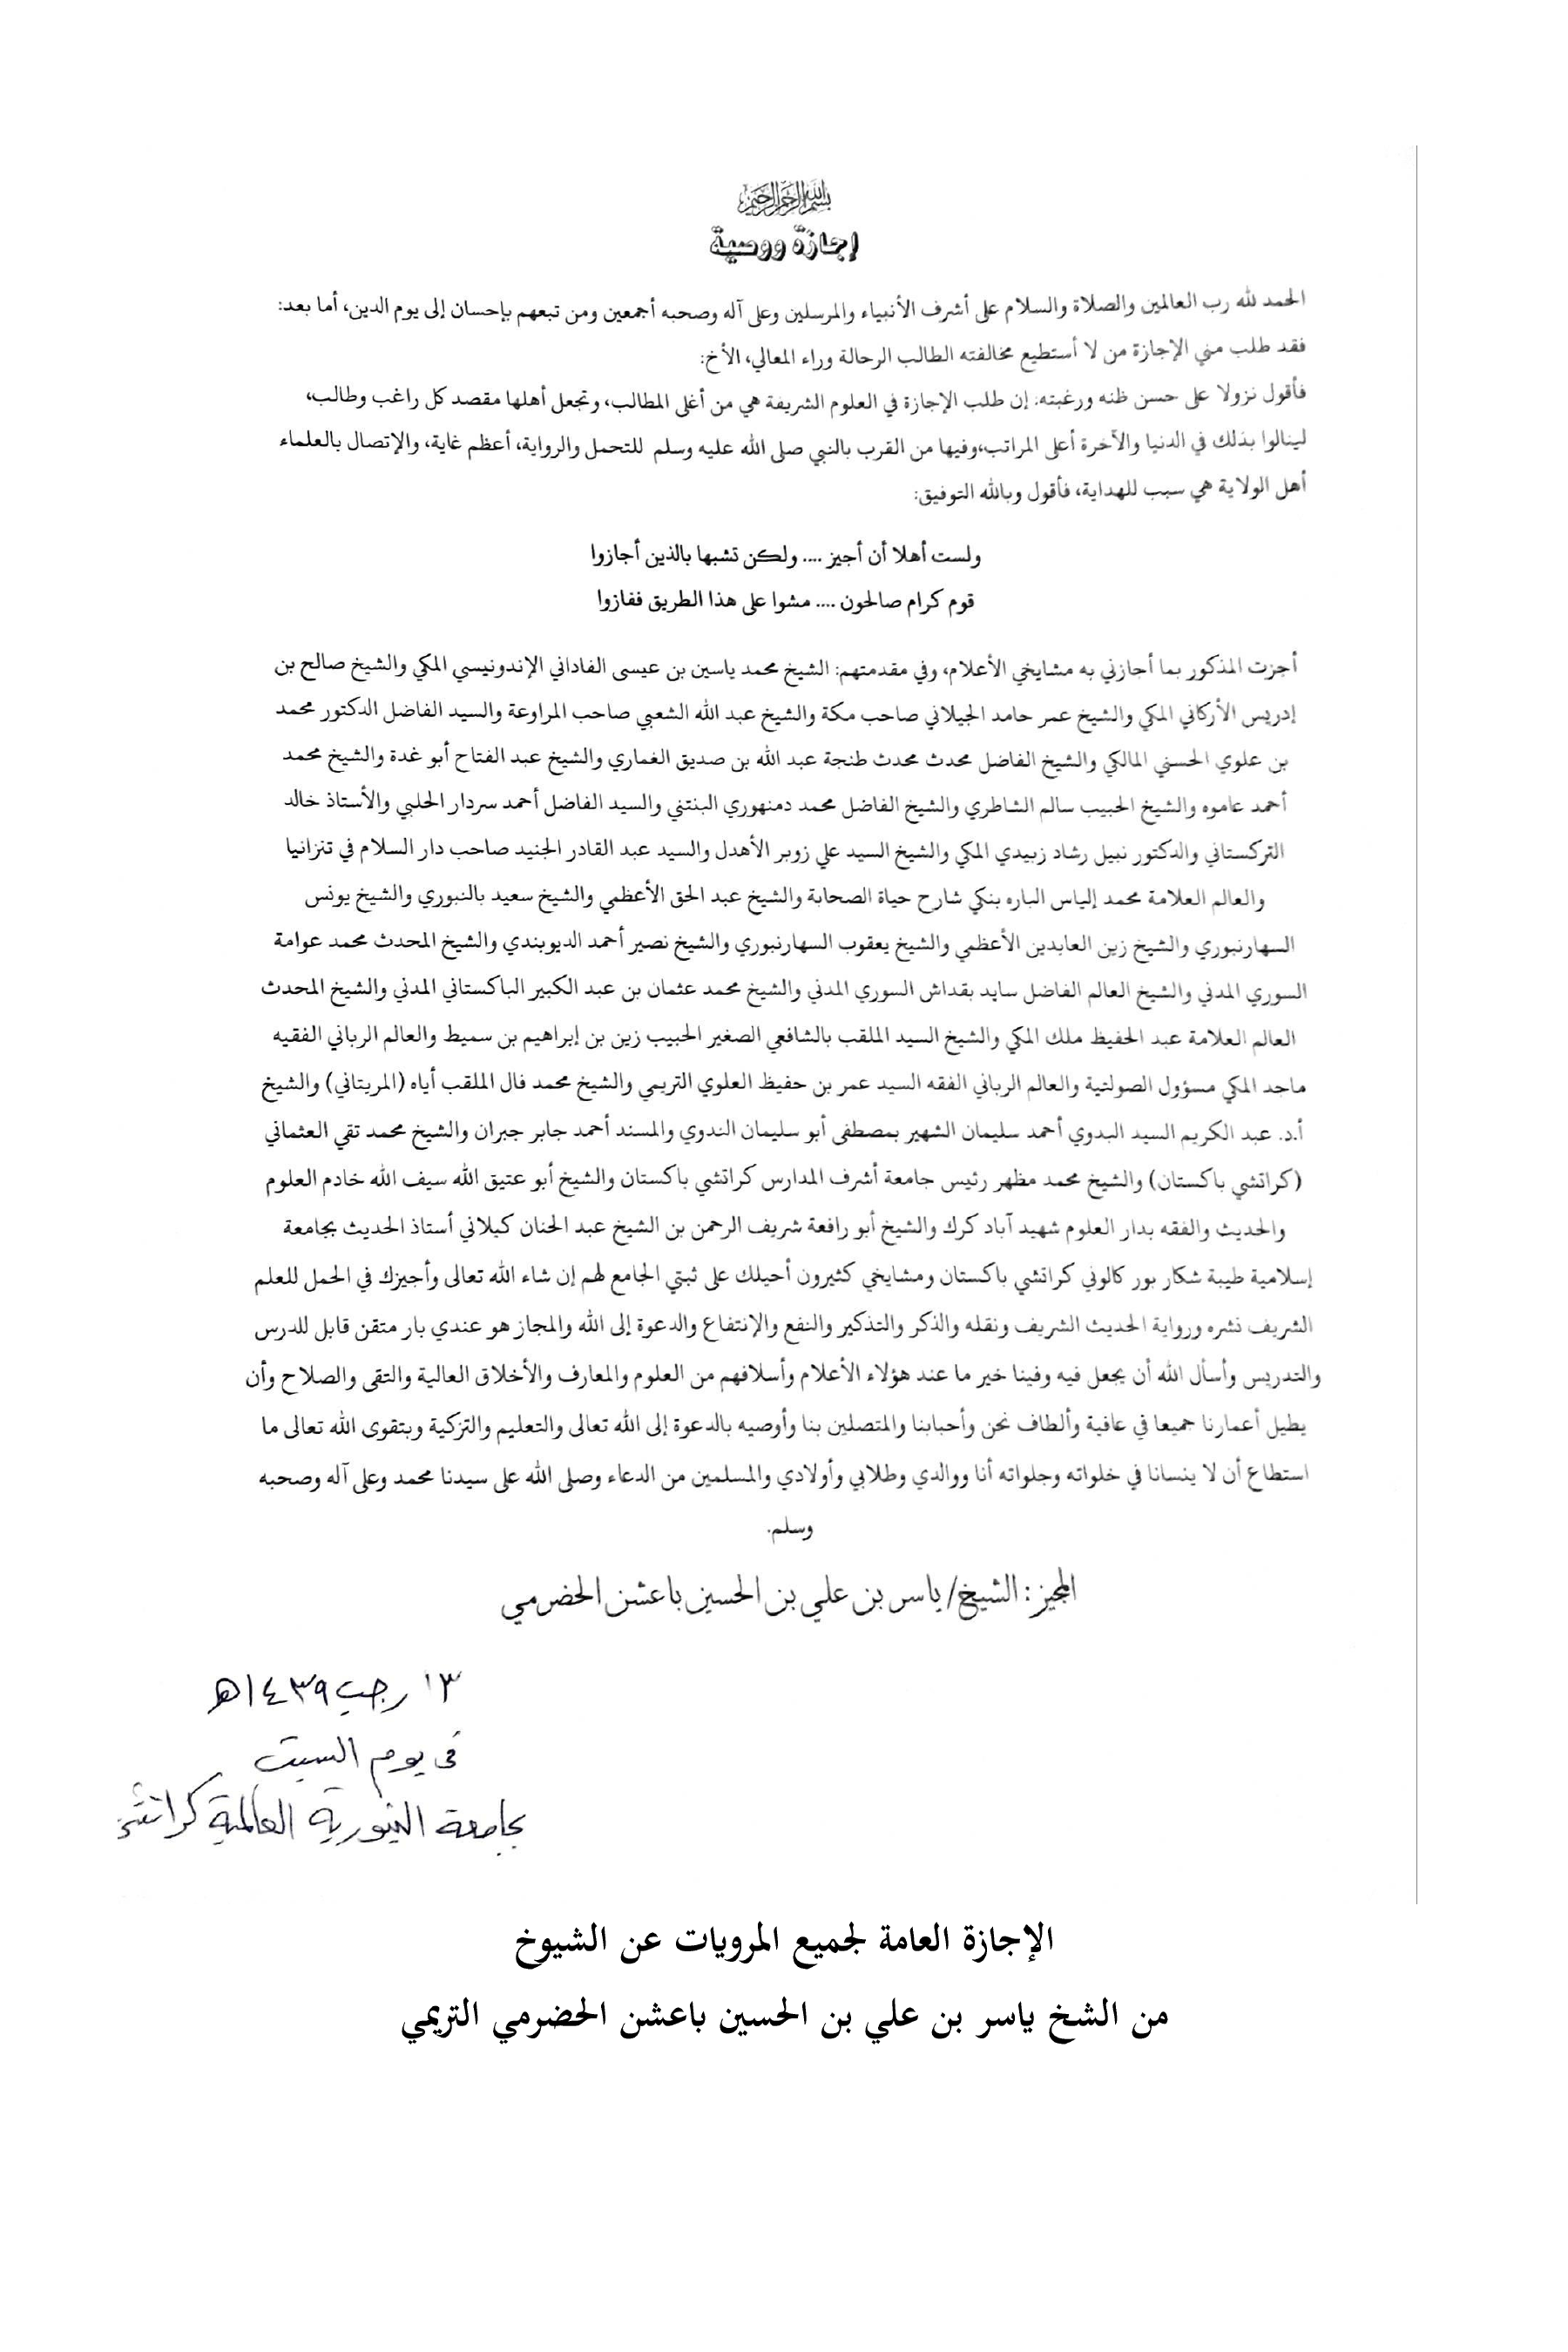 بسم الله الرحمن الرحيم
إجازة ووصية
الحمد لله رب العالمين والصلاة والسلام على أشرف الأنبياء والمرسلين وعلى آله وصحبه أجمعين ومن تبعهم بإحسان إلى يوم الدين، أما بعد:
فقد طلب مني الإجازة من لا أستطيع مخالفته الطالب الرحالة وراء المعالي، الأخ:
فأقول نزولا على حسن ظنه ورغبته: إن طلب الإجازة في العلوم الشريفة هي من أغلى المطالب، وتجعل أهلها مقصد كل راغب وطالب،
لينالوا بذلك في الدنيا والآخرة أعلى المراتب،وفيها من القرب بالنبي صلى الله عليه وسلم للتحمل والرواية، أعظم غاية، والإتصال بالعلماء
أهل الولاية هي سبب للهداية، فأقول وبالله التوفيق:
ولست أهلا أن أجيز .... ولكن تشبها بالذين أجازوا
قوم كرام صالحون .... مشوا على هذا الطريق ففازوا
أجزت المذكور بما أجازني به مشايخي الأعلام، وفي مقدمتهم: الشيخ محمد ياسين بن عيسى الفاداني الإندونيسي المكي والشيخ صالح بن
إدريس الأركاني المكي والشيخ عمر حامد الجيلاني صاحب مكة والشيخ عبد الله الشعبي صاحب المراوعة والسيد الفاضل الدكتور محمد
بن علوي الحسني المالكي والشيخ الفاضل محدث محدث طنجة عبد الله بن صديق الغماري والشيخ عبد الفتاح أبو غدة والشيخ محمد
أحمد عاموه والشيخ الحبيب سالم الشاطري والشيخ الفاضل محمد دمنهوري البنتني والسيد الفاضل أحمد سردار الحلبي والأستاذ خالد
التركستاني والدكتور نبيل رشاد زبيدي المكي والشيخ السيد علي زوبر الأهدل والسيد عبد القادر الجنيد صاحب دار السلام في تنزانيا
والعالم العلامة محمد إلياس الباره بنكي شارح حياة الصحابة والشيخ عبد الحق الأعظمي والشيخ سعيد بالنبوري والشيخ يونس
السهارنبوري والشيخ زين العابدين الأعظمي والشيخ يعقوب السهارنبوري والشيخ نصير أحمد الديوبندي والشيخ المحدث محمد عوامة
السوري المدني والشيخ العالم الفاضل سايد بقداش السوري المدني والشيخ محمد عثمان بن عبد الكبير الباكستاني المدني والشيخ المحدث
العالم العلامة عبد الحفيظ ملك المكي والشيخ السيد الملقب بالشافعي الصغير الحبيب زين بن إبراهيم بن سميط والعالم الرباني الفقيه
ماجد المكي مسؤول الصولتية والعالم الرباني الفقه السيد عمر بن حفيظ العلوي التريمي والشيخ محمد فال الملقب أياه (المريتاني) والشيخ
أ.د. عبد الكريم السيد البدوي أحمد سليمان الشهير بمصطفى أبو سليمان الندوي والمسند أحمد جابر جبران والشيخ محمد تقي العثماني
(كراتشي باكستان) والشيخ محمد مظهر رئيس جامعة أشرف المدارس كراتشي باكستان والشيخ أبو عتيق الله سيف الله خادم العلوم
والحديث والفقه بدار العلوم شهيد آباد كرك والشيخ أبو رافعة شريف الرحمن بن الشيخ عبد الحنان كيلاني أستاذ الحديث بجامعة
إسلامية طيبة شكار بور كالوني كراتشي باكستان ومشايخي كثيرون أحيلك على ثبتي الجامع لهم إن شاء الله تعالى وأجيزك في الحمل للعلم
الشريف نشره ورواية الحديث الشريف ونقله والذكر والتذكير والنفع والإنتفاع والدعوة إلى الله والمجاز هو عندي بار متقن قابل للدرس
والتدريس وأسأل الله أن يجعل فيه وفينا خير ما عند هؤلاء الأعلام وأسلافهم من العلوم والمعارف والأخلاق العالية والتقى والصلاح وأن
يطيل أعمارنا جميعا في عافية وألطاف نحن وأحبابنا والمتصلين بنا وأوصيه بالدعوة إلى الله تعالى والتعليم والتزكية وبتقوى الله تعالى ما
استطاع أن لا ينسانا في خلواته وجلواته أنا ووالدي وطلابي وأولادي والمسلمين من الدعاء وصلى الله على سيدنا محمد وعلى آله وصحبه
وسلم.
المجيز : الشيخ/ ياسر بن علي بن الحسين باعشن الحضرمي
١٣ رجب ١٤٣٩ھ
فى يوم السبت
بجامعة البنورية العالمية كراتشي
الإجازة العامة لجميع المرويات عن الشيوخ
من الشخ ياسر بن علي بن الحسين باعشن الحضرمي التريمي